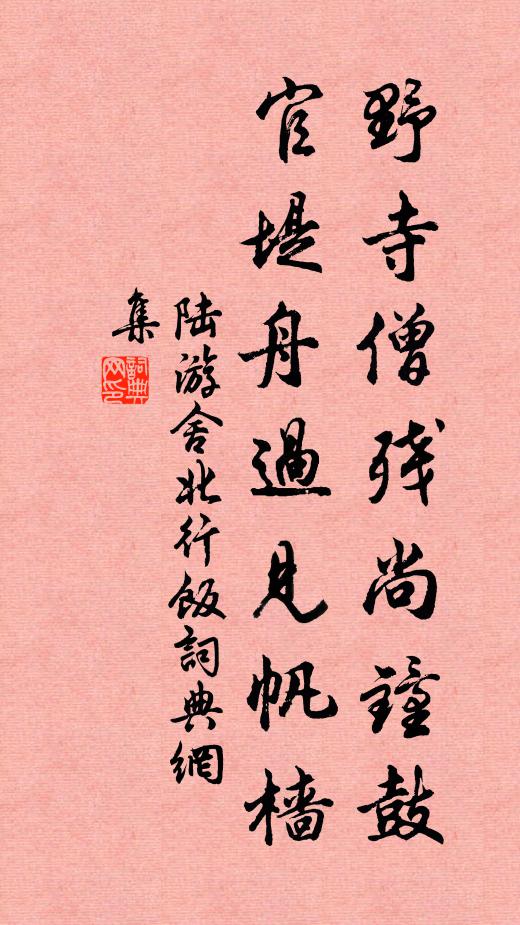 野寺僧残尚鐘鼓
官堤舟過見帆檣
陆游舍北行飯詞典網
集
詞典
网印